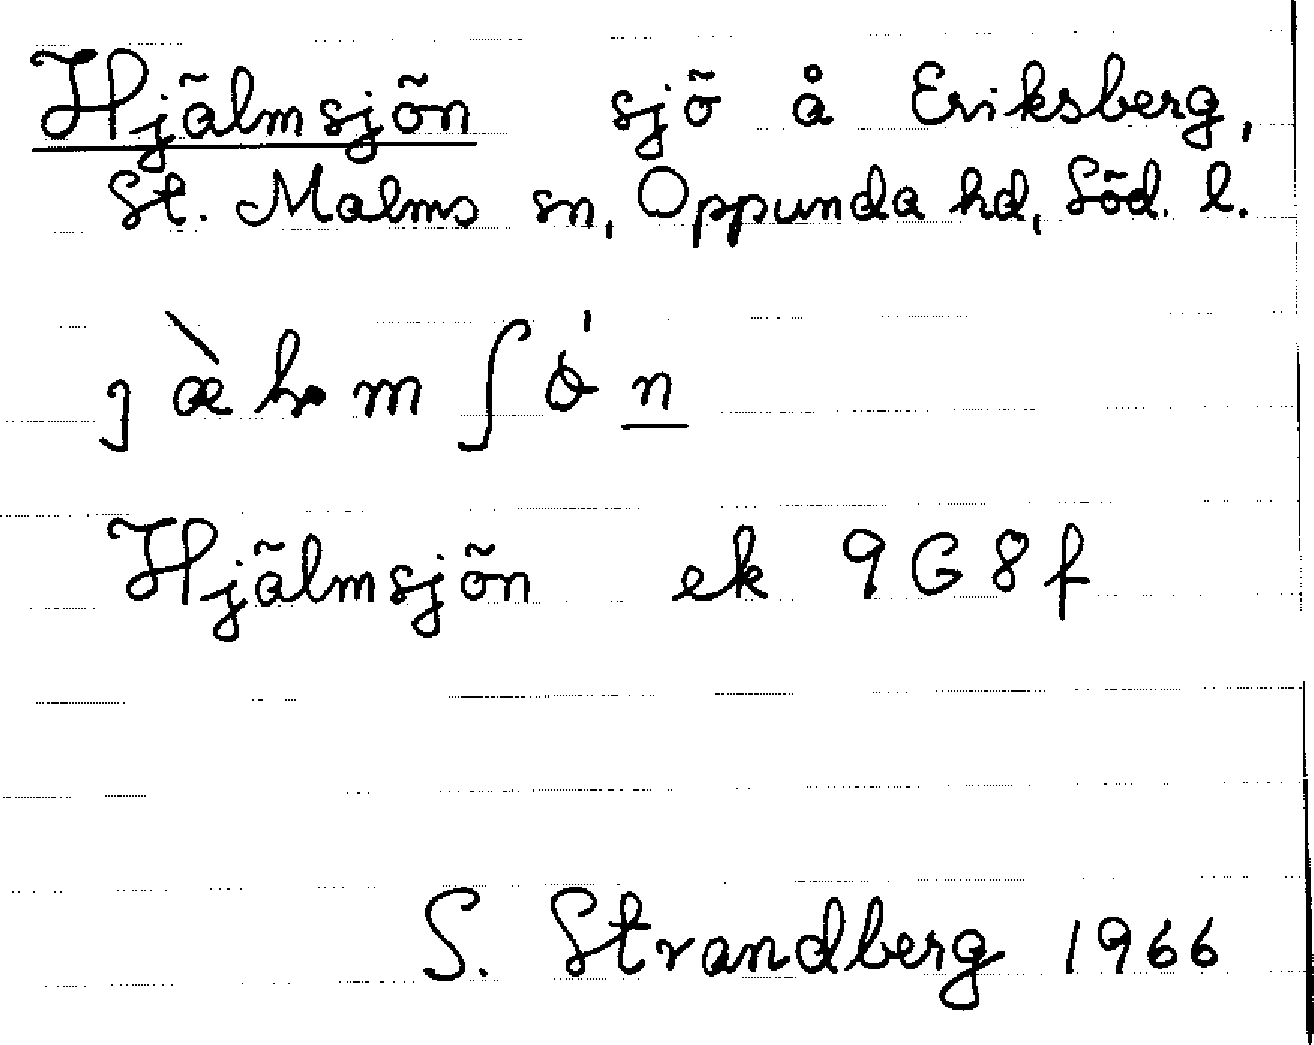 Hjälmsjön sjö å Eriksberg,
St. Malms sn, Oppunda hd, Söd. l.
Hjälmsjön ek 9G8f
S. Strandberg 1966